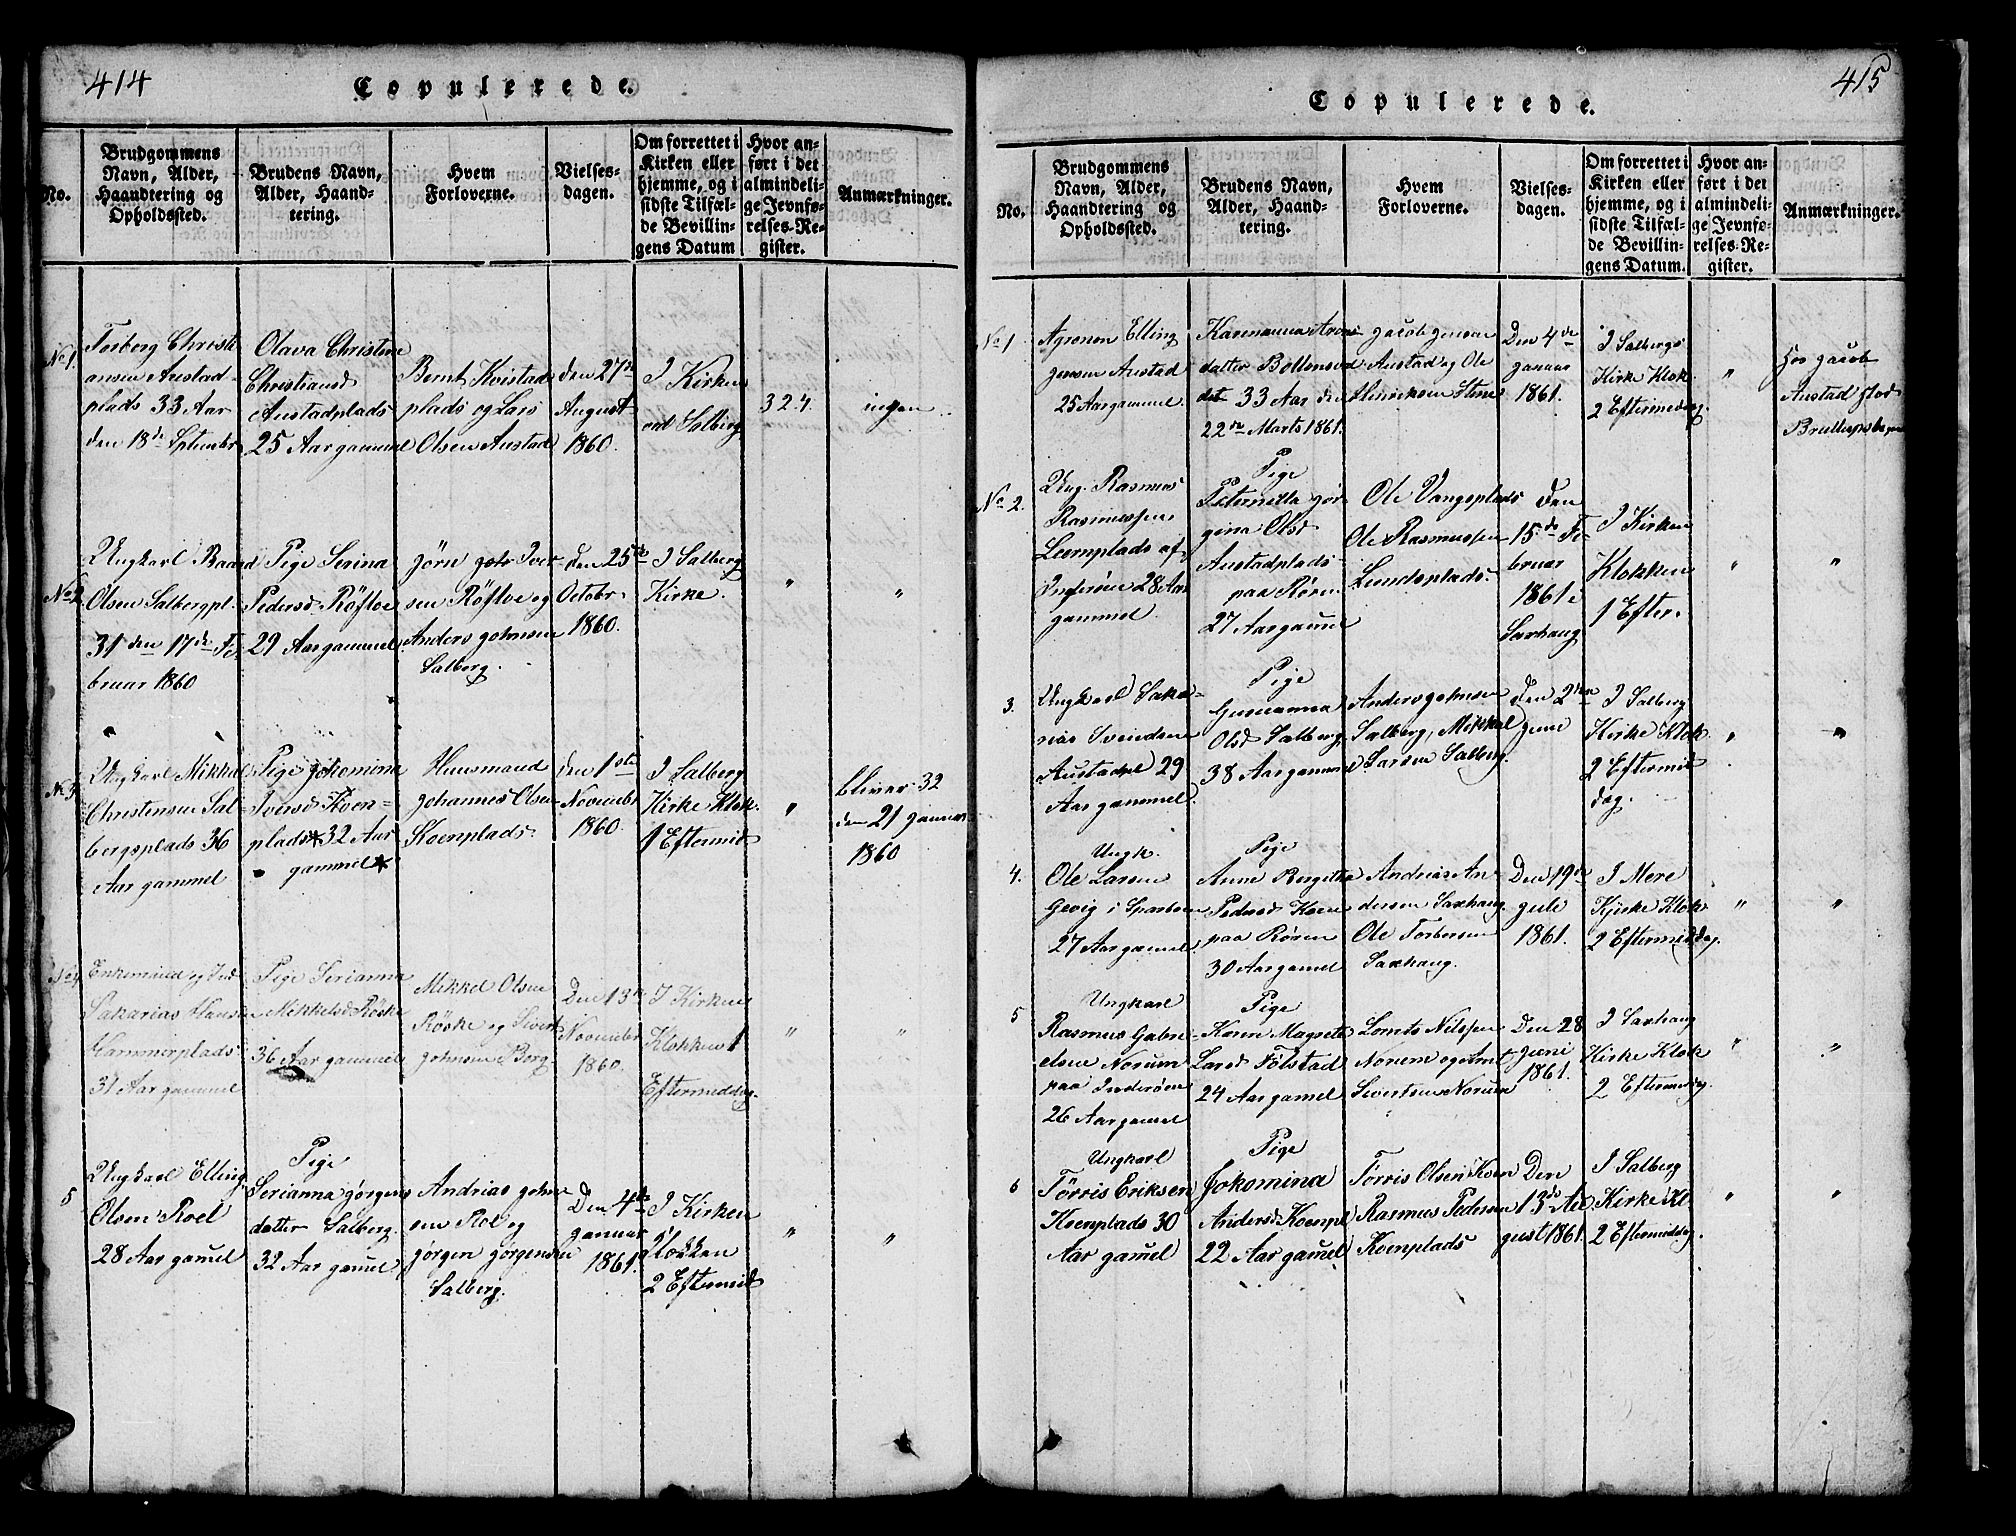 414
Copulerede.
No.
Brudgommens
Navn, Alder,
Haandtering og
Opholdssted.
Brudens Navn,
Alder, Haand-
tering.
Hvem
Forloverne.
Vielses-
dagen.
Om forrettet i
Kirken eller
hjemme, og i
sidste Tilfæl-
de Bevillin-
gens Datum
Hvor an-
ført i det
almindeli-
ge Jevnfø-
relses-Re-
gister.
Anmærkninger.
No 1.
Torberg Christi
ansen Austad-
plads 33 Aar
den 18de Sptember
Olava Christine
Christiansd
Austadplads
25 Aar gammel
Bernt Kvistad
plads og Lars
Olsen Austad
den 27de
August
1860.
I Kirken
ved Salberg
324.
ingen
No 2
Ungkarl Baard
Olsen Salbergpl.
31 den 17de Fe
bruar 1860
Pige Serina
Pedersd Röfloe
29 Aar gammel
Jörn Johs Iver-
sen Röfloe og
Anders Johnsen
Salberg.
den 25de
Octobr
1860.
I Salberg
Kirke.
"
"
No 3
Ungkarl Mikkal
Christensen Sal-
bergsplads 36
Aar gammel
Pige Jokomina
Iversd Koen-
plads 32 Aar
gammel
Huusmand
Johannes Olsen
Koenplads
den 1ste
November
1860.
I Salberg
Kirke Klok.
1 Eftermid
"
bliver 32
den 21 Januar
1860
No 4
Enkemand og Ind
Sakarias Hansen
Hammerplads
31 Aar gammel
Pige Serianna
Mikkelsd Röske
36 Aar gammel
Mikkel Olsen
Röske og Sivert
Johnsen Borg
Den 13de
November
1860.
I Kirken
Klokken 1
Eftermiddag.
"
"
5
Ungkarl Elling
Olsen Roel
28 Aar gamel
Pige
Serianna Jörgens
datter Salberg.
32 Aar gamel
Andrias John
sen Roe og
Jörgen Jörgensen
Salberg.
Den 4de
Januar
1861.
I Kirken
Klokken
2 Eftermid
"
"
415
Copulerede.
No.
Brudgommens
Navn, Alder,
Haandtering og
Opholdssted.
Brudens Navn,
Alder, Haand-
tering.
Hvem
Forloverne.
Vielses-
dagen.
Om forrettet i
Kirken eller
hjemme, og i
sidste Tilfæl-
de Bevillin-
gens Datum.
Hvor an-
ført i det
almindeli-
ge Jevnfø-
relses-Re-
gister.
Anmærkninger.
No 1.
Agronon Elling
Jensen Austad
25 Aar gammel.
Karenanna Arons
datter
33 Aar den
22de Marts 1861.
Jacob Jensen
Austad og Ole
Henriksen Stene
Den 4de
Januar
1861.
I Salbergs
Kirke Klok.
2 Eftermiddag.
"
Hos Jacob
Austad stod
No 2.
Ung. Rasmus
Rasmussen
Leernplads af
Inderöen 28 Aar
gammel
Pige
Peternilla Jör-
gina Olsd
Austadplads
paa Rören
27 Aar gamel
Ole Vangsplads
Ole Rasmussen
Lundsplads.
Den
15de Fe-
bruar
1861 i
Saxhaug
I Kirken
Klokken
1 Efter.
"
"
3.
Ungkarl Saka-
rias Svendsen
Austadpl 29
Aar gammel.
Pige
Gureanna
Olsd Salberg
38 Aar gammel
Anders Johnsen
Salberg, Mikkal
Larsen Salberg.
Den 2den
Juni
I Salberg
Kirke Klok
2 Eftermid
dag.
"
"
4.
Ungk.
Ole Larsen
Gevig i Sparboen
27 Aar gammel.
Pige
Anne Bergitha
Pedersd Koen
paa Rören
30 Aar gamel
Andrias An
dersen Saxhaug.
Ole Torbersen
Saxhaug.
Den 19de
Jule
1861.
I Mere
Kjirke Klok
2 Eftermiddag.
"
"
5
Ungkarl
Rasmus Gabri-
elsen Norum
paa Inderöen
26 Aar gamel
Pige
Karen Magrete
Larsd Fölstad
24 Aar gamel
Lornts Nilssen
Norum og Arnt
Sivertsen Norum
Den 28
Juni
1861.
I Saxhaug
Kirke Klok
2 Eftermiddag.
"
"
6
Ungkarl
Törris Eriksen
Koenplads 30
Aar gamel
Pige
Jokomina
Andersd Koenpl
22 Aar gamel
Törris Olsen Koen
Rasmus Pedersen
Koenplads
Den
13de Au
gust 1861
I Salberg
Kirke Kl
2 Eftermiddag.
"
"